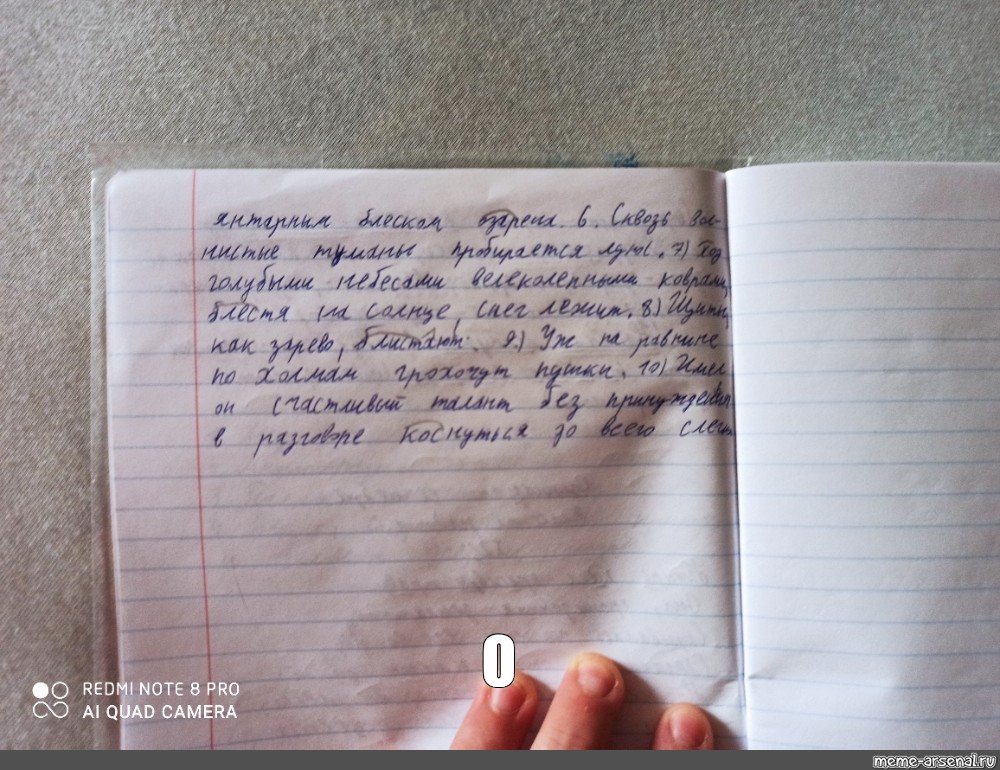 янтарным блеском озарена. 6. Сквозь вол-
нистые туманы пробирается луна. 7) Под
голубыми небесами велеколепными коврами,
блестя на солнце, снег лежит. 8.) Щиты,
как зарево, блистают. 9.) Уж на равнине
по холмам грохочут пушки. 10) Имел
он счастливый талант без принужденья
в разговоре коснуться до всего слегка
0
REDMI NOTE 8 PRO
AI QUAD CAMERA
meme-arsenal.ru